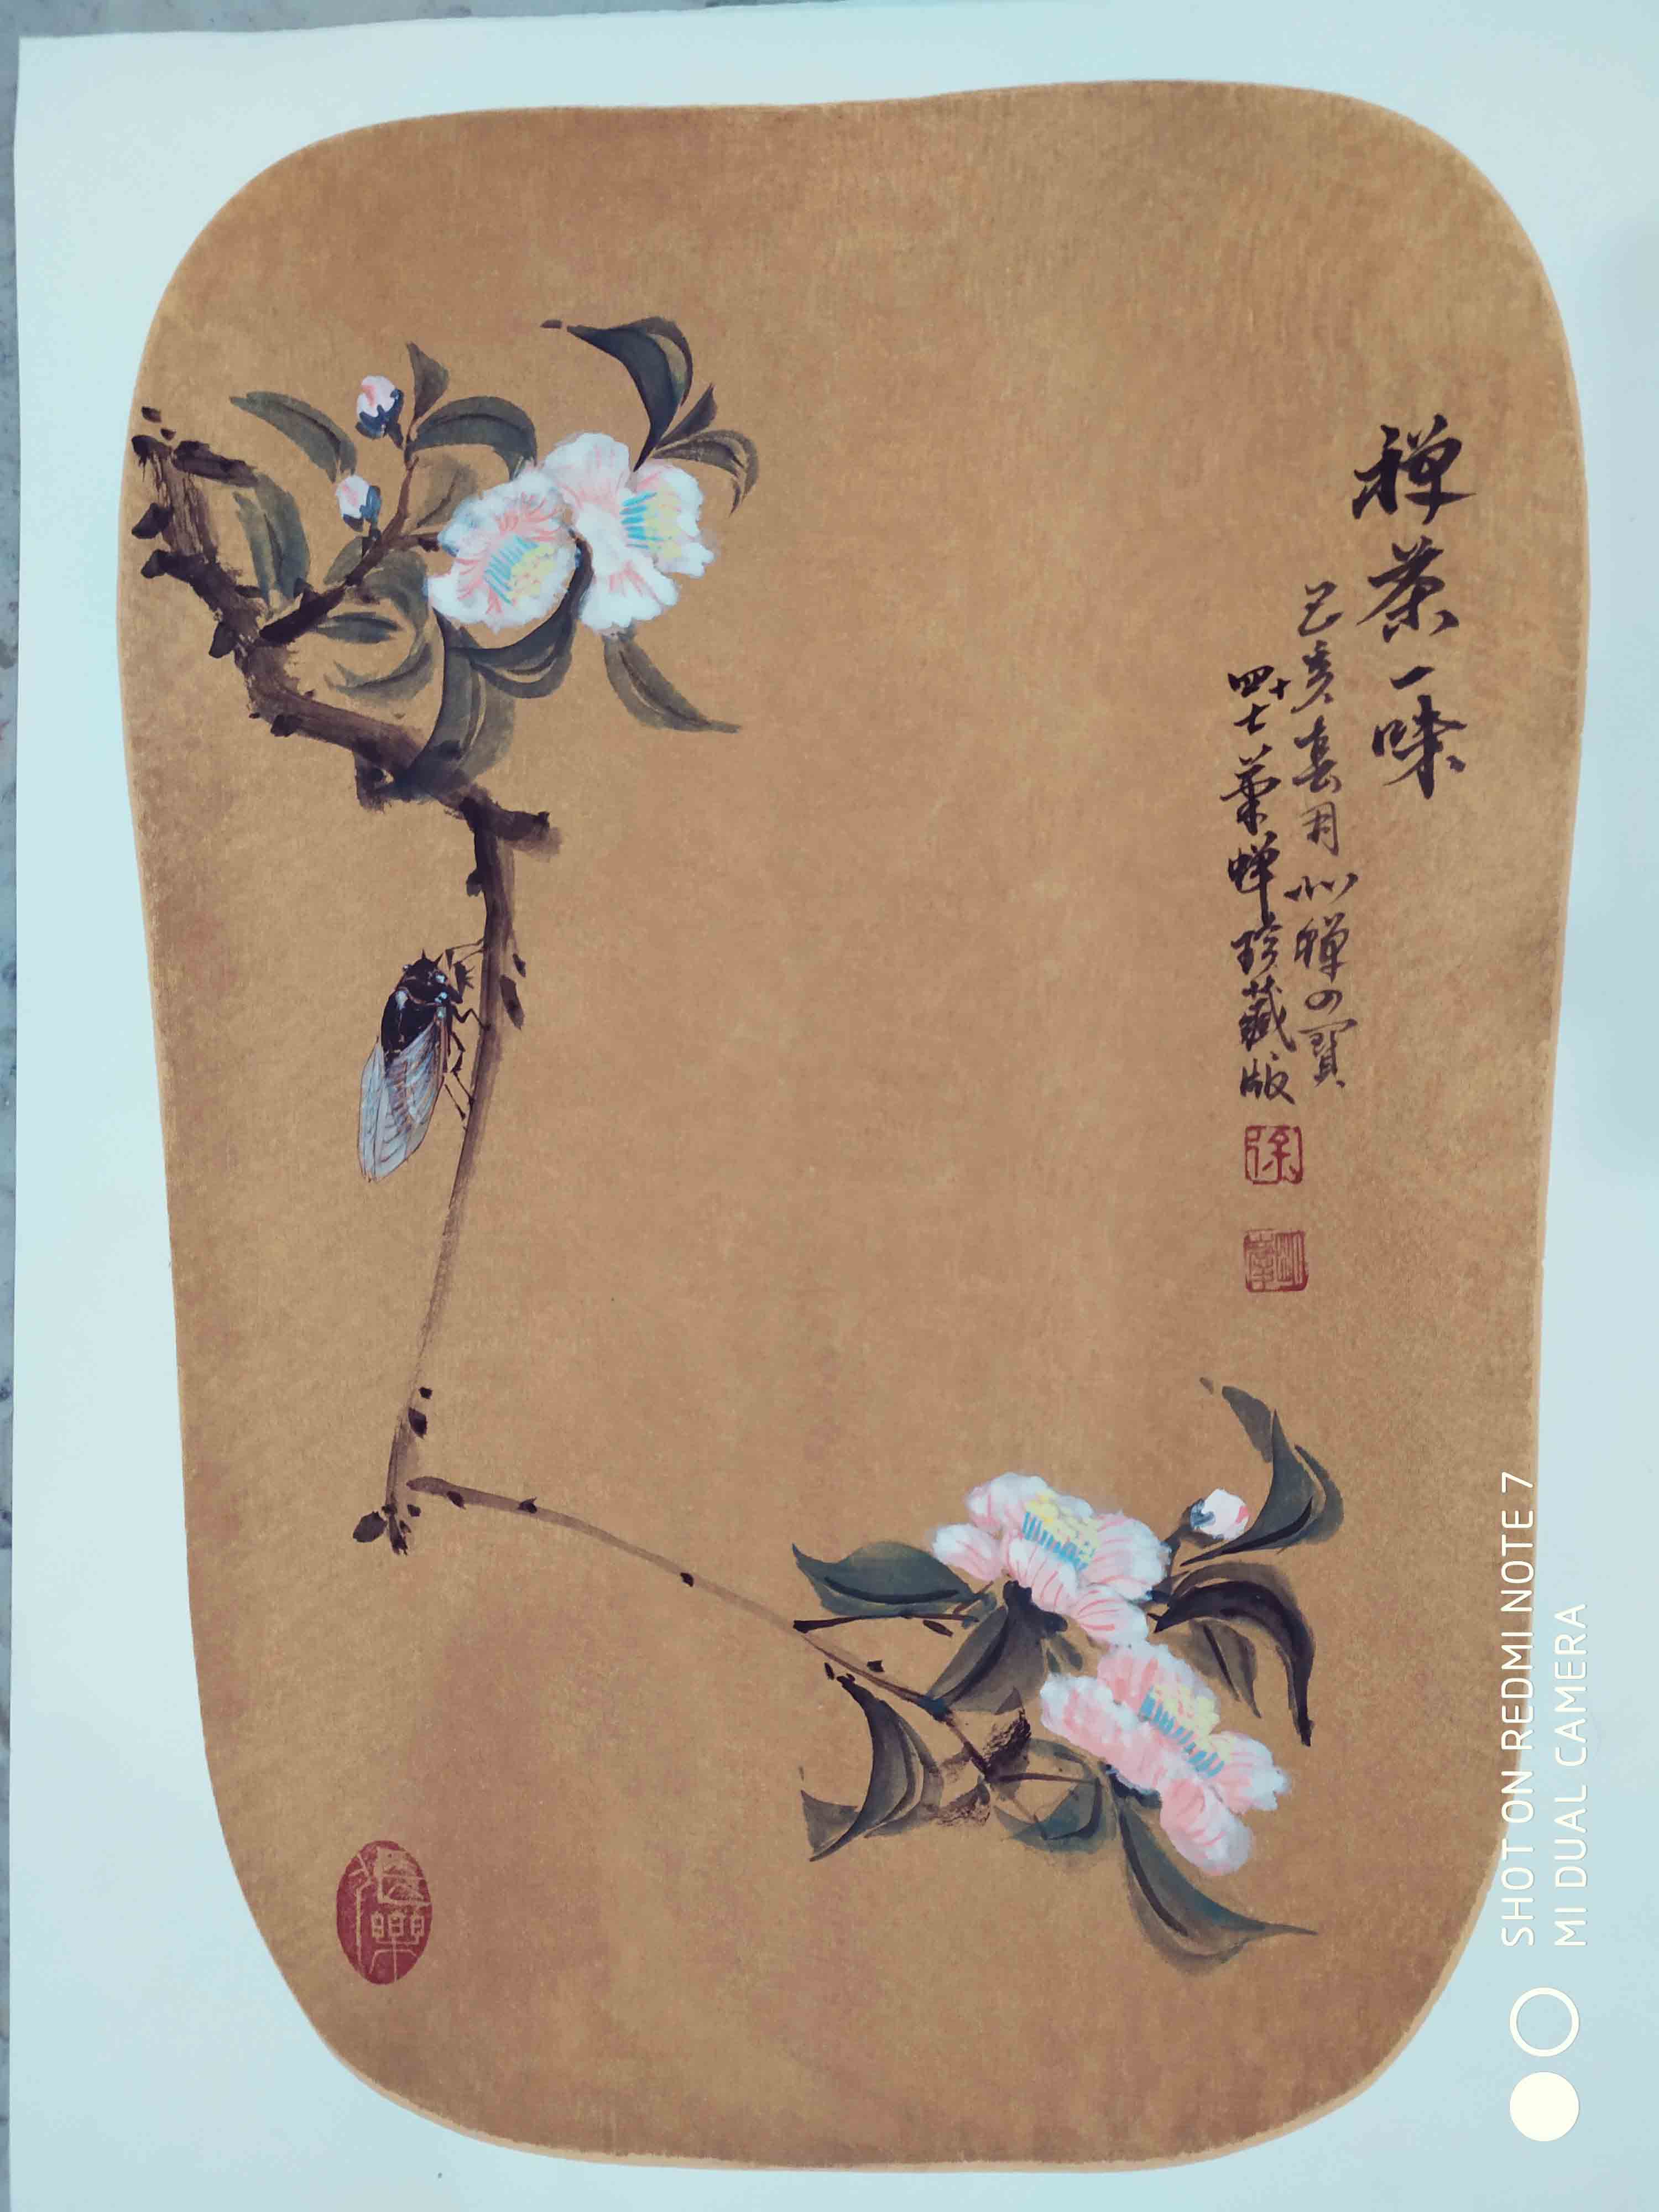 禅茶一味
己亥春月心禅の寶
四十七葉蝉珍藏版
徐
SHOT ON REDMI NOTE 7
MI DUAL CAMERA